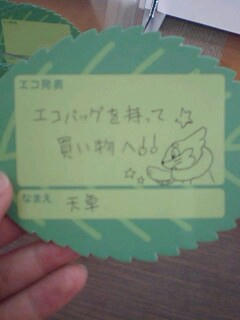 エコ発表
エコバッグを持って
買い物へ！！
なまえ 天草